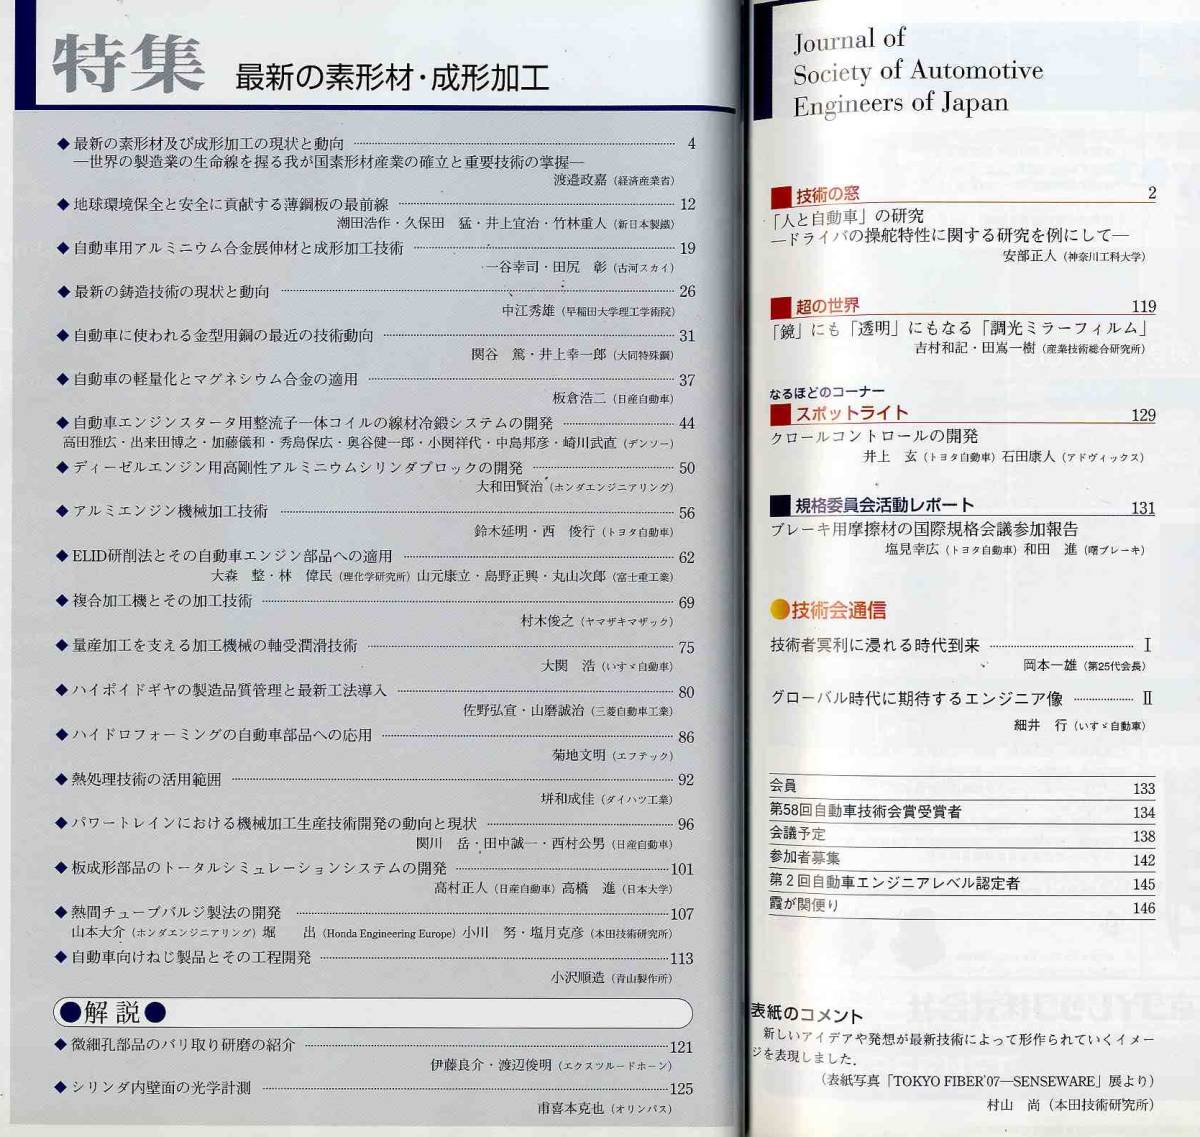 特集 最新の素形材・成形加工
◆最新の素形材及び成形加工の現状と動向 4
―世界の製造業の生命線を握る我が国素形材産業の確立と重要技術の掌握―
渡邉政嘉（経済産業省）
◆地球環境保全と安全に貢献する薄鋼板の最前線 12
潮田浩作・久保田 猛・井上宜治・竹林重人（新日本製鐵）
◆自動車用アルミニウム合金展伸材と成形加工技術 19
一谷幸司・田尻 彰（古河スカイ）
◆最新の鋳造技術の現状と動向 26
中江秀雄（早稲田大学理工学術院）
◆自動車に使われる金型用鋼の最近の技術動向 31
関谷 篤・井上幸一郎（大同特殊鋼）
◆自動車の軽量化とマグネシウム合金の適用 37
板倉浩二（日産自動車）
◆自動車エンジンスタータ用整流子一体コイルの線材冷鍛システムの開発 44
高田雅広・出来田博之・加藤儀和・秀島保広・奥谷健一郎・小関祥代・中島邦彦・崎川武直（デンソー）
◆ディーゼルエンジン用高剛性アルミニウムシリンダブロックの開発 50
大和田賢治（ホンダエンジニアリング）
◆アルミエンジン機械加工技術 56
鈴木延明・西 俊行（トヨタ自動車）
◆ELID研削法とその自動車エンジン部品への適用 62
大森 整・林 偉民（理化学研究所）山元康立・島野正興・丸山次郎（富士重工業）
◆複合加工機とその加工技術 69
村木俊之（ヤマザキマザック）
◆量産加工を支える加工機械の軸受潤滑技術 75
大関 浩（いすゞ自動車）
◆ハイポイドギヤの製造品質管理と最新工法導入 80
佐野弘宣・山磨誠治（三菱自動車工業）
◆ハイドロフォーミングの自動車部品への応用 86
菊地文明（エフテック）
◆熱処理技術の活用範囲 92
垪和成佳（ダイハツ工業）
◆パワートレインにおける機械加工生産技術開発の動向と現状 96
関川 岳・田中誠一・西村公男（日産自動車）
◆板成形部品のトータルシミュレーションシステムの開発 101
高村正人（日産自動車）高橋 進（日本大学）
◆熱間チューブバルジ製法の開発 107
山本大介（ホンダエンジニアリング）堀 出（Honda Engineering Europe）小川 努・塩月克彦（本田技術研究所）
◆自動車向けねじ製品とその工程開発 113
小沢順造（青山製作所）
●解説●
◆微細孔部品のバリ取り研磨の紹介 121
伊藤良介・渡辺俊明（エクスツルードホーン）
◆シリンダ内壁面の光学計測 125
甫喜本克也（オリンパス）
Journal of
Society of Automotive
Engineers of Japan
■技術の窓 2
「人と自動車」の研究
―ドライバの操舵特性に関する研究を例にして―
安部正人（神奈川工科大学）
■超の世界 119
「鏡」にも「透明」にもなる「調光ミラーフィルム」
吉村和記・田嶌一樹（産業技術総合研究所）
なるほどのコーナー
■スポットライト 129
クロールコントロールの開発
井上 玄（トヨタ自動車）石田康人（アドヴィックス）
■規格委員会活動レポート 131
ブレーキ用摩擦材の国際規格会議参加報告
塩見幸広（トヨタ自動車）和田 進（曙ブレーキ）
●技術会通信
技術者冥利に浸れる時代到来 Ⅰ
岡本一雄（第25代会長）
グローバル時代に期待するエンジニア像 Ⅱ
細井 行（いすゞ自動車）
会員 133
第58回自動車技術会賞受賞者 134
会議予定 138
参加者募集 142
第2回自動車エンジニアレベル認定者 145
霞が関便り 146
表紙のコメント
新しいアイデアや発想が最新技術によって形作られていくイメー
ジを表現しました．
（表紙写真「TOKYO FIBER'07―SENSEWARE」展より）
村山 尚（本田技術研究所）